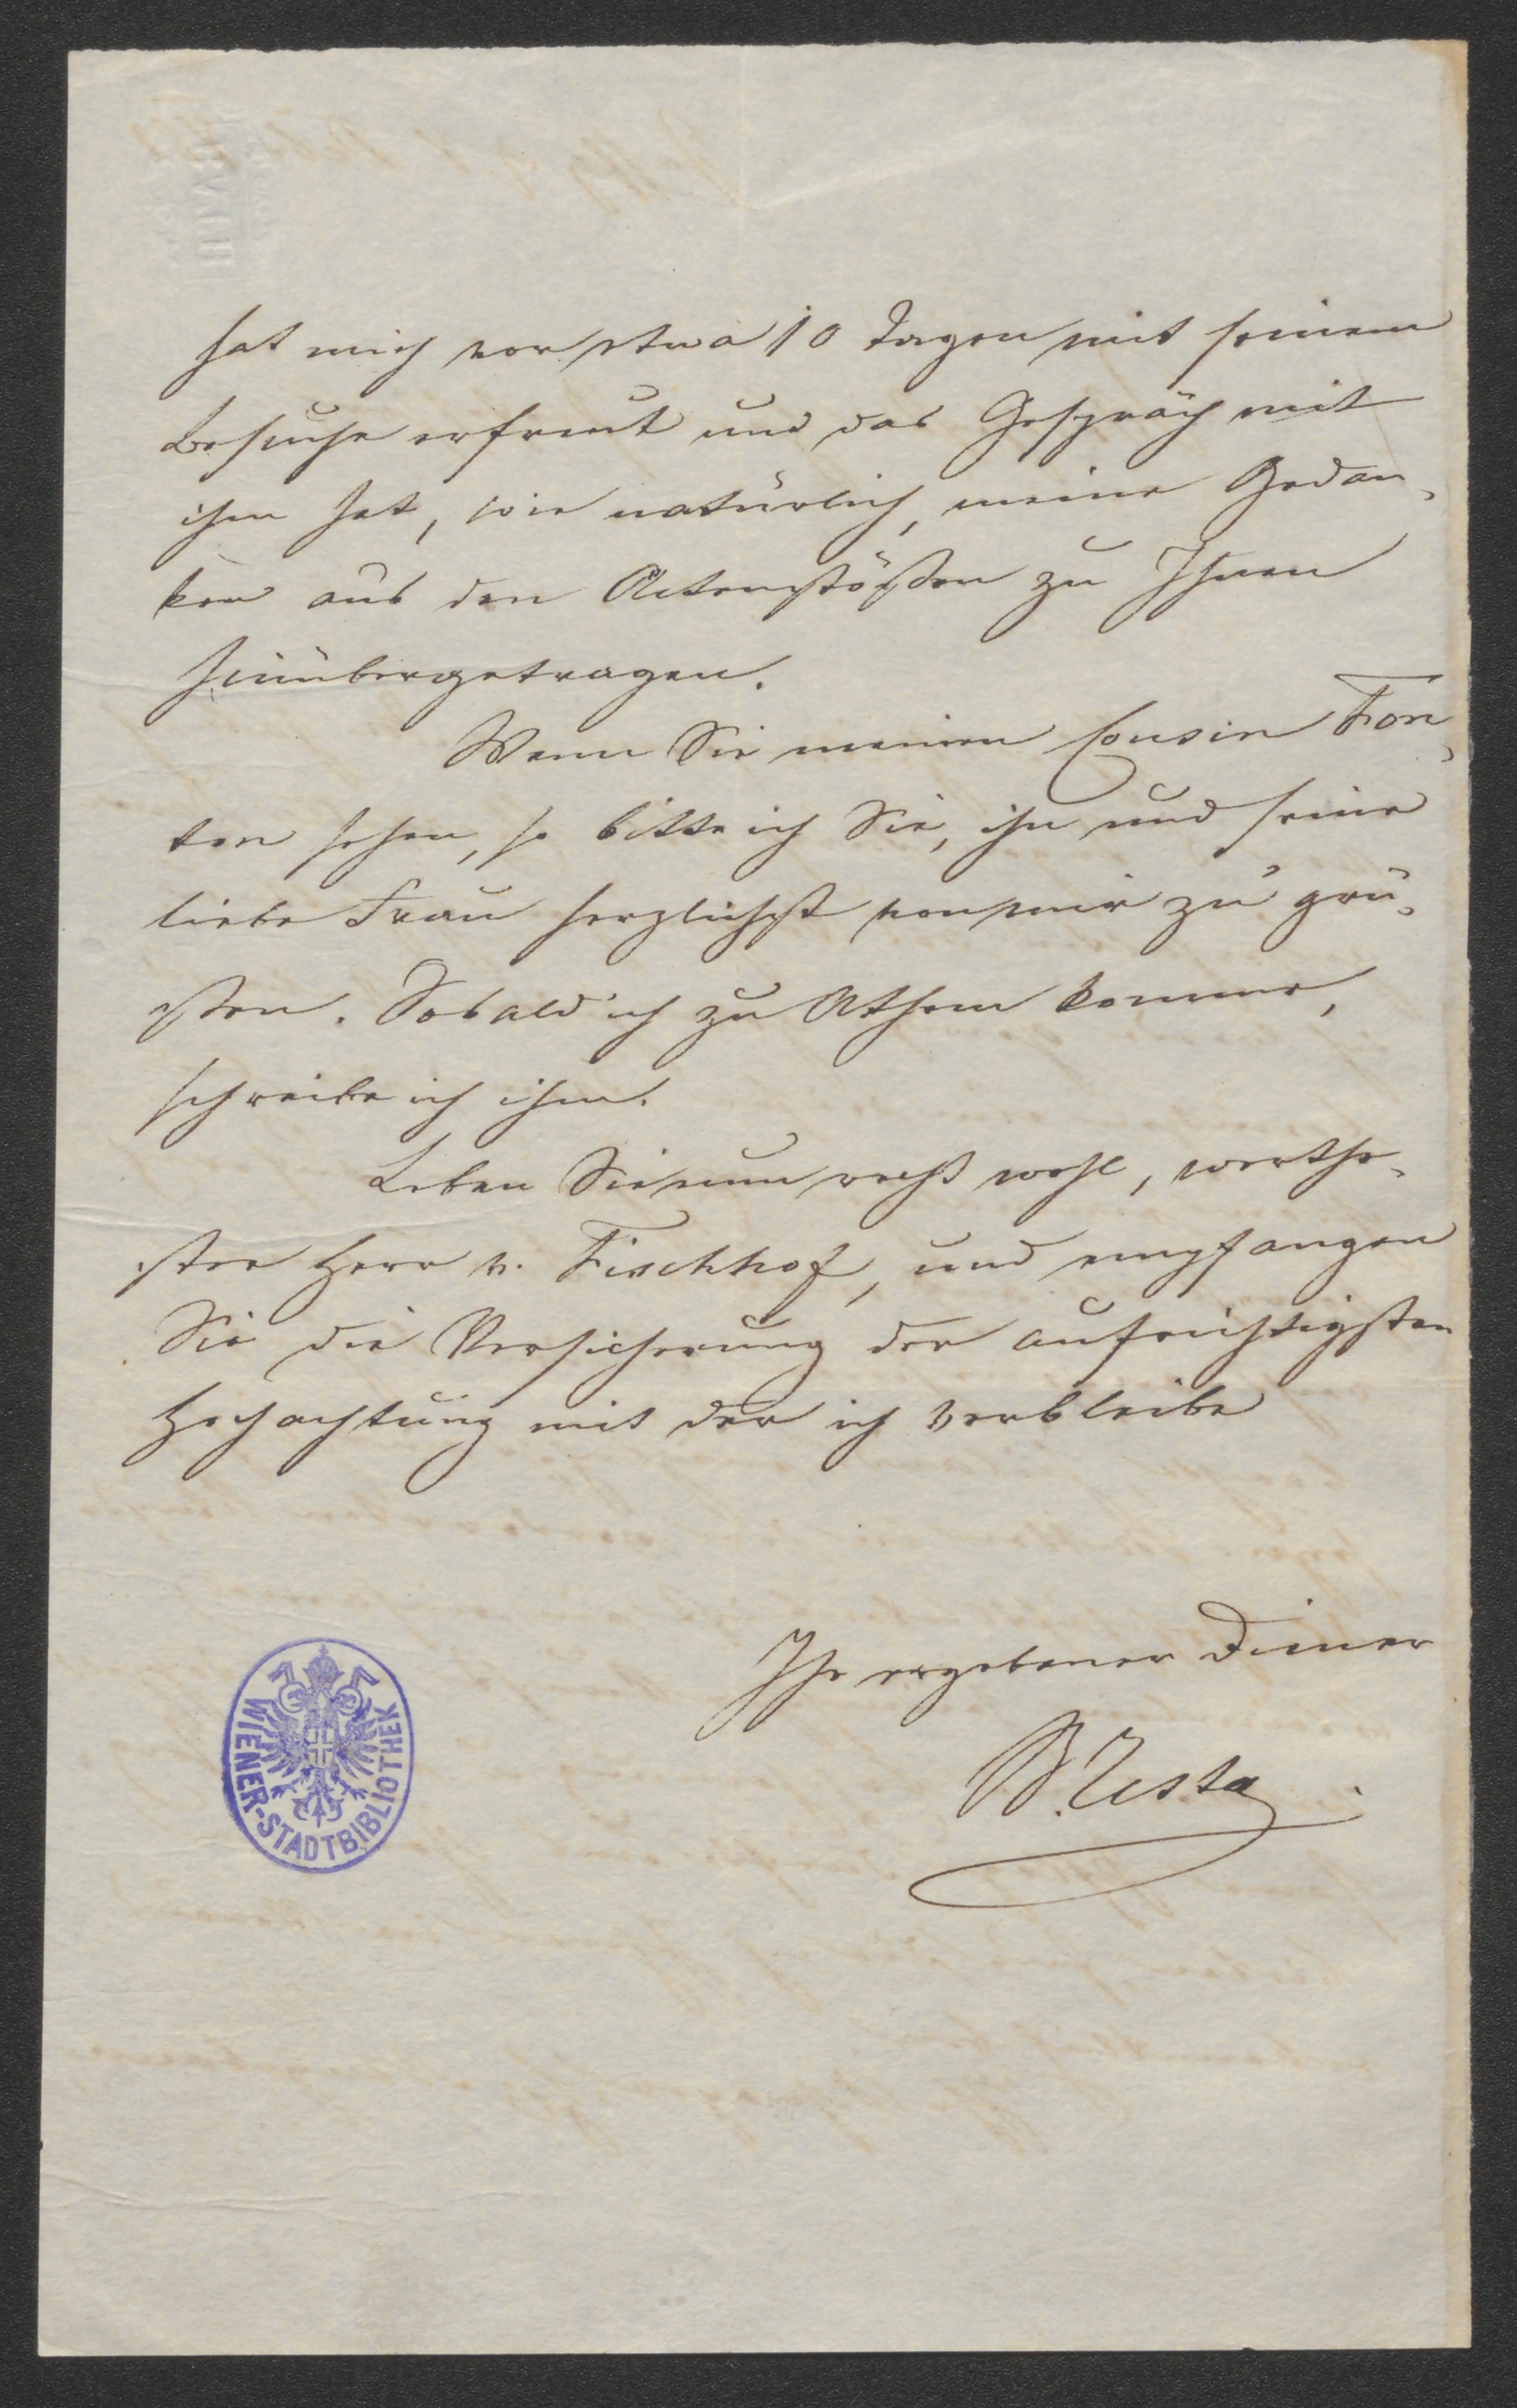 hat mich vor etwa 10 Tagen mit seinem
Besuche erfreut und das Gespräch mit
ihm hat, wie natürlich, meine Gedan-
ken aus den Actenstößen zu Ihnen
hinübergetragen.
Wenn Sie meinen Cousin Fon-
ton sehen, so bitte ich Sie, ihn und seine
liebe Frau herzlichst von mir zu grü-
ßen. Sobald ich zu Athem komme,
schreibe ich ihm.
Leben Sie nun recht wohl, werthe-
ster Herr v. Fischhof, und empfangen
Sie die Versicherung der aufrichtigsten
Hochachtung mit der ich verbleibe
Ihr ergebener Diener
Testa
WIENER-STADTBIBLIOTHEK